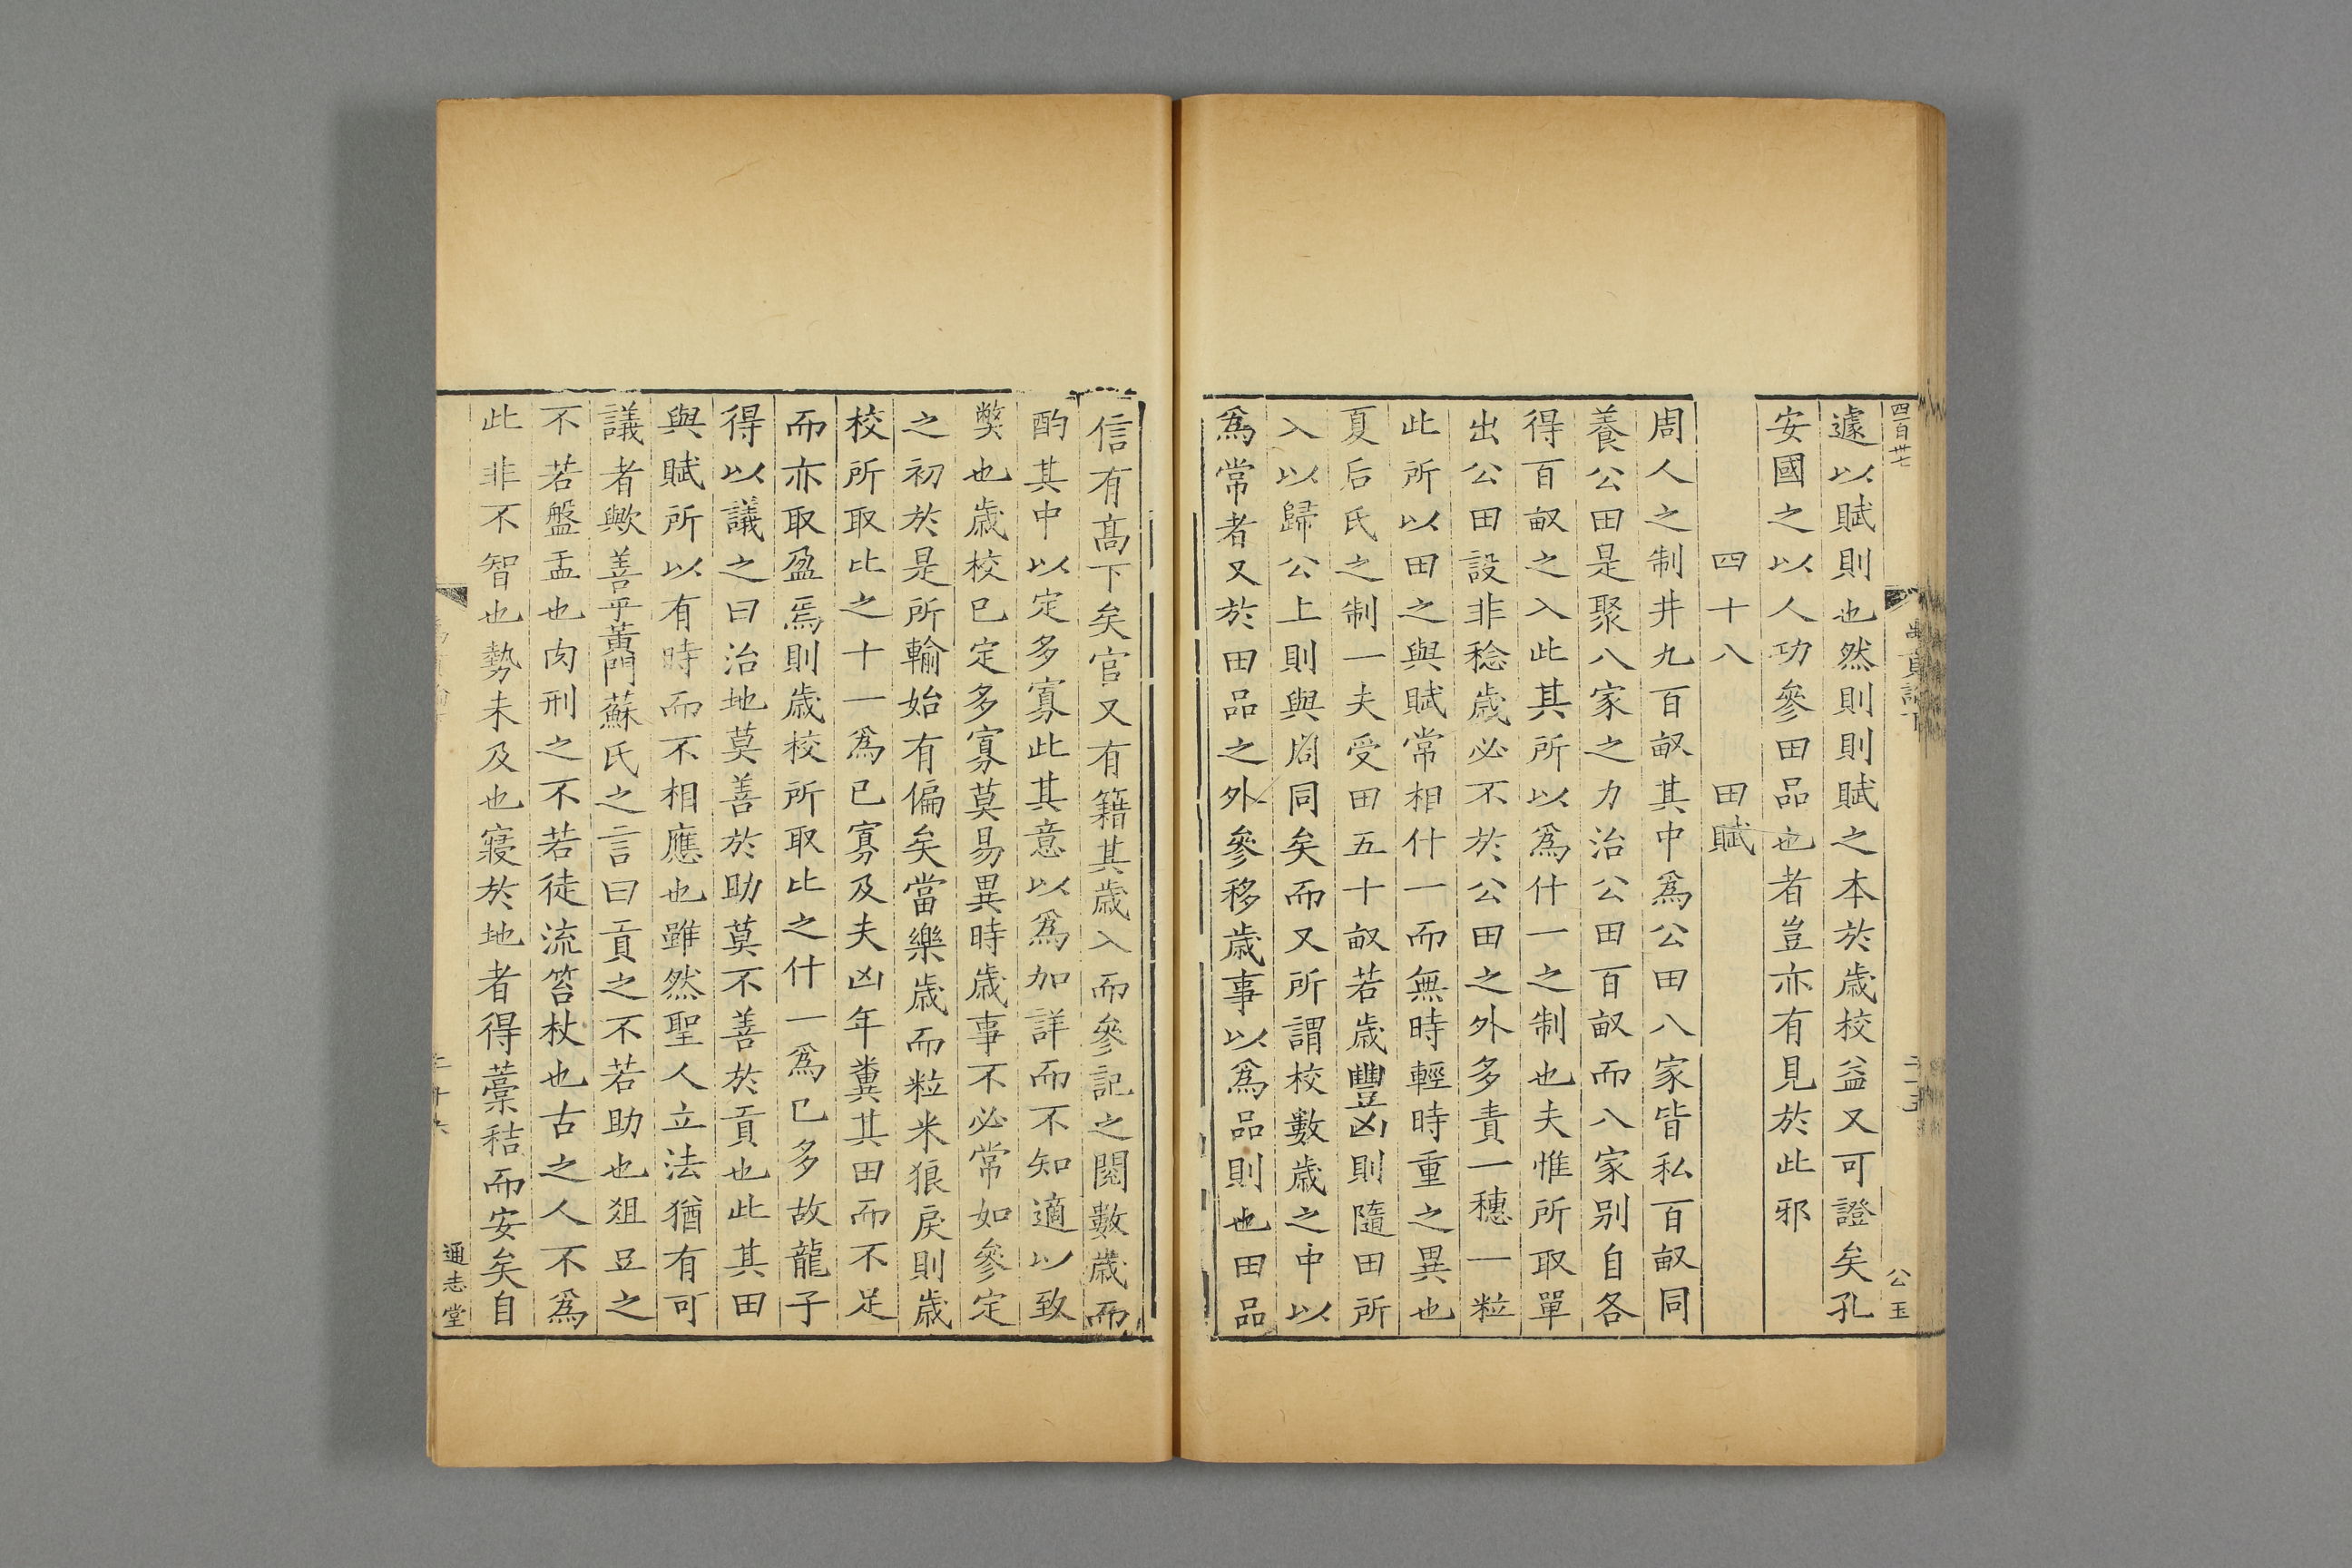 四百卅七
公玉
遽以賦則也然則則賦之本於歲校益又可證矣孔
安國之以人功參田品也者豈亦有見於此邪
四十八 田賦
周人之制井九百畝其中爲公田八家皆私百畝同
養公田是聚八家之力治公田百畝而八家别自各
得百畝之入此其所以爲什一之制也夫惟所取單
出公田設非稔歲必不於公田之外多責一穗一粒
此所以田之與賦常相什一而無時輕時重之異也
夏后氏之制一夫受田五十畝若歲豐凶則隨田所
入以歸公上則與周同矣而又所謂校數歲之中以
爲常者又於田品之外參移歲事以爲品則也田品
信有高下矣官又有籍其歲入而參記之閱數歲而
酌其中以定多寡此其意以爲加詳而不知適以致
弊也歲校已定多寡莫易異時歲事不必常如參定
之初於是所輸始有偏矣當樂歲而粒米狼戾則歲
校所取比之十一爲已寡及夫凶年糞其田而不足
而亦取盈焉則歲校所取比之什一爲已多故龍子
得以議之曰治地莫善於助莫不善於貢也此其田
與賦所以有時而不相應也雖然聖人立法猶有可
議者歟善乎黄門蘇氏之言曰貢之不若助也俎豆之
不若盤盂也肉刑之不若徒流笞杖也古之人不爲
此非不智也勢未及也寢於地者得藁秸而安矣自
通志堂